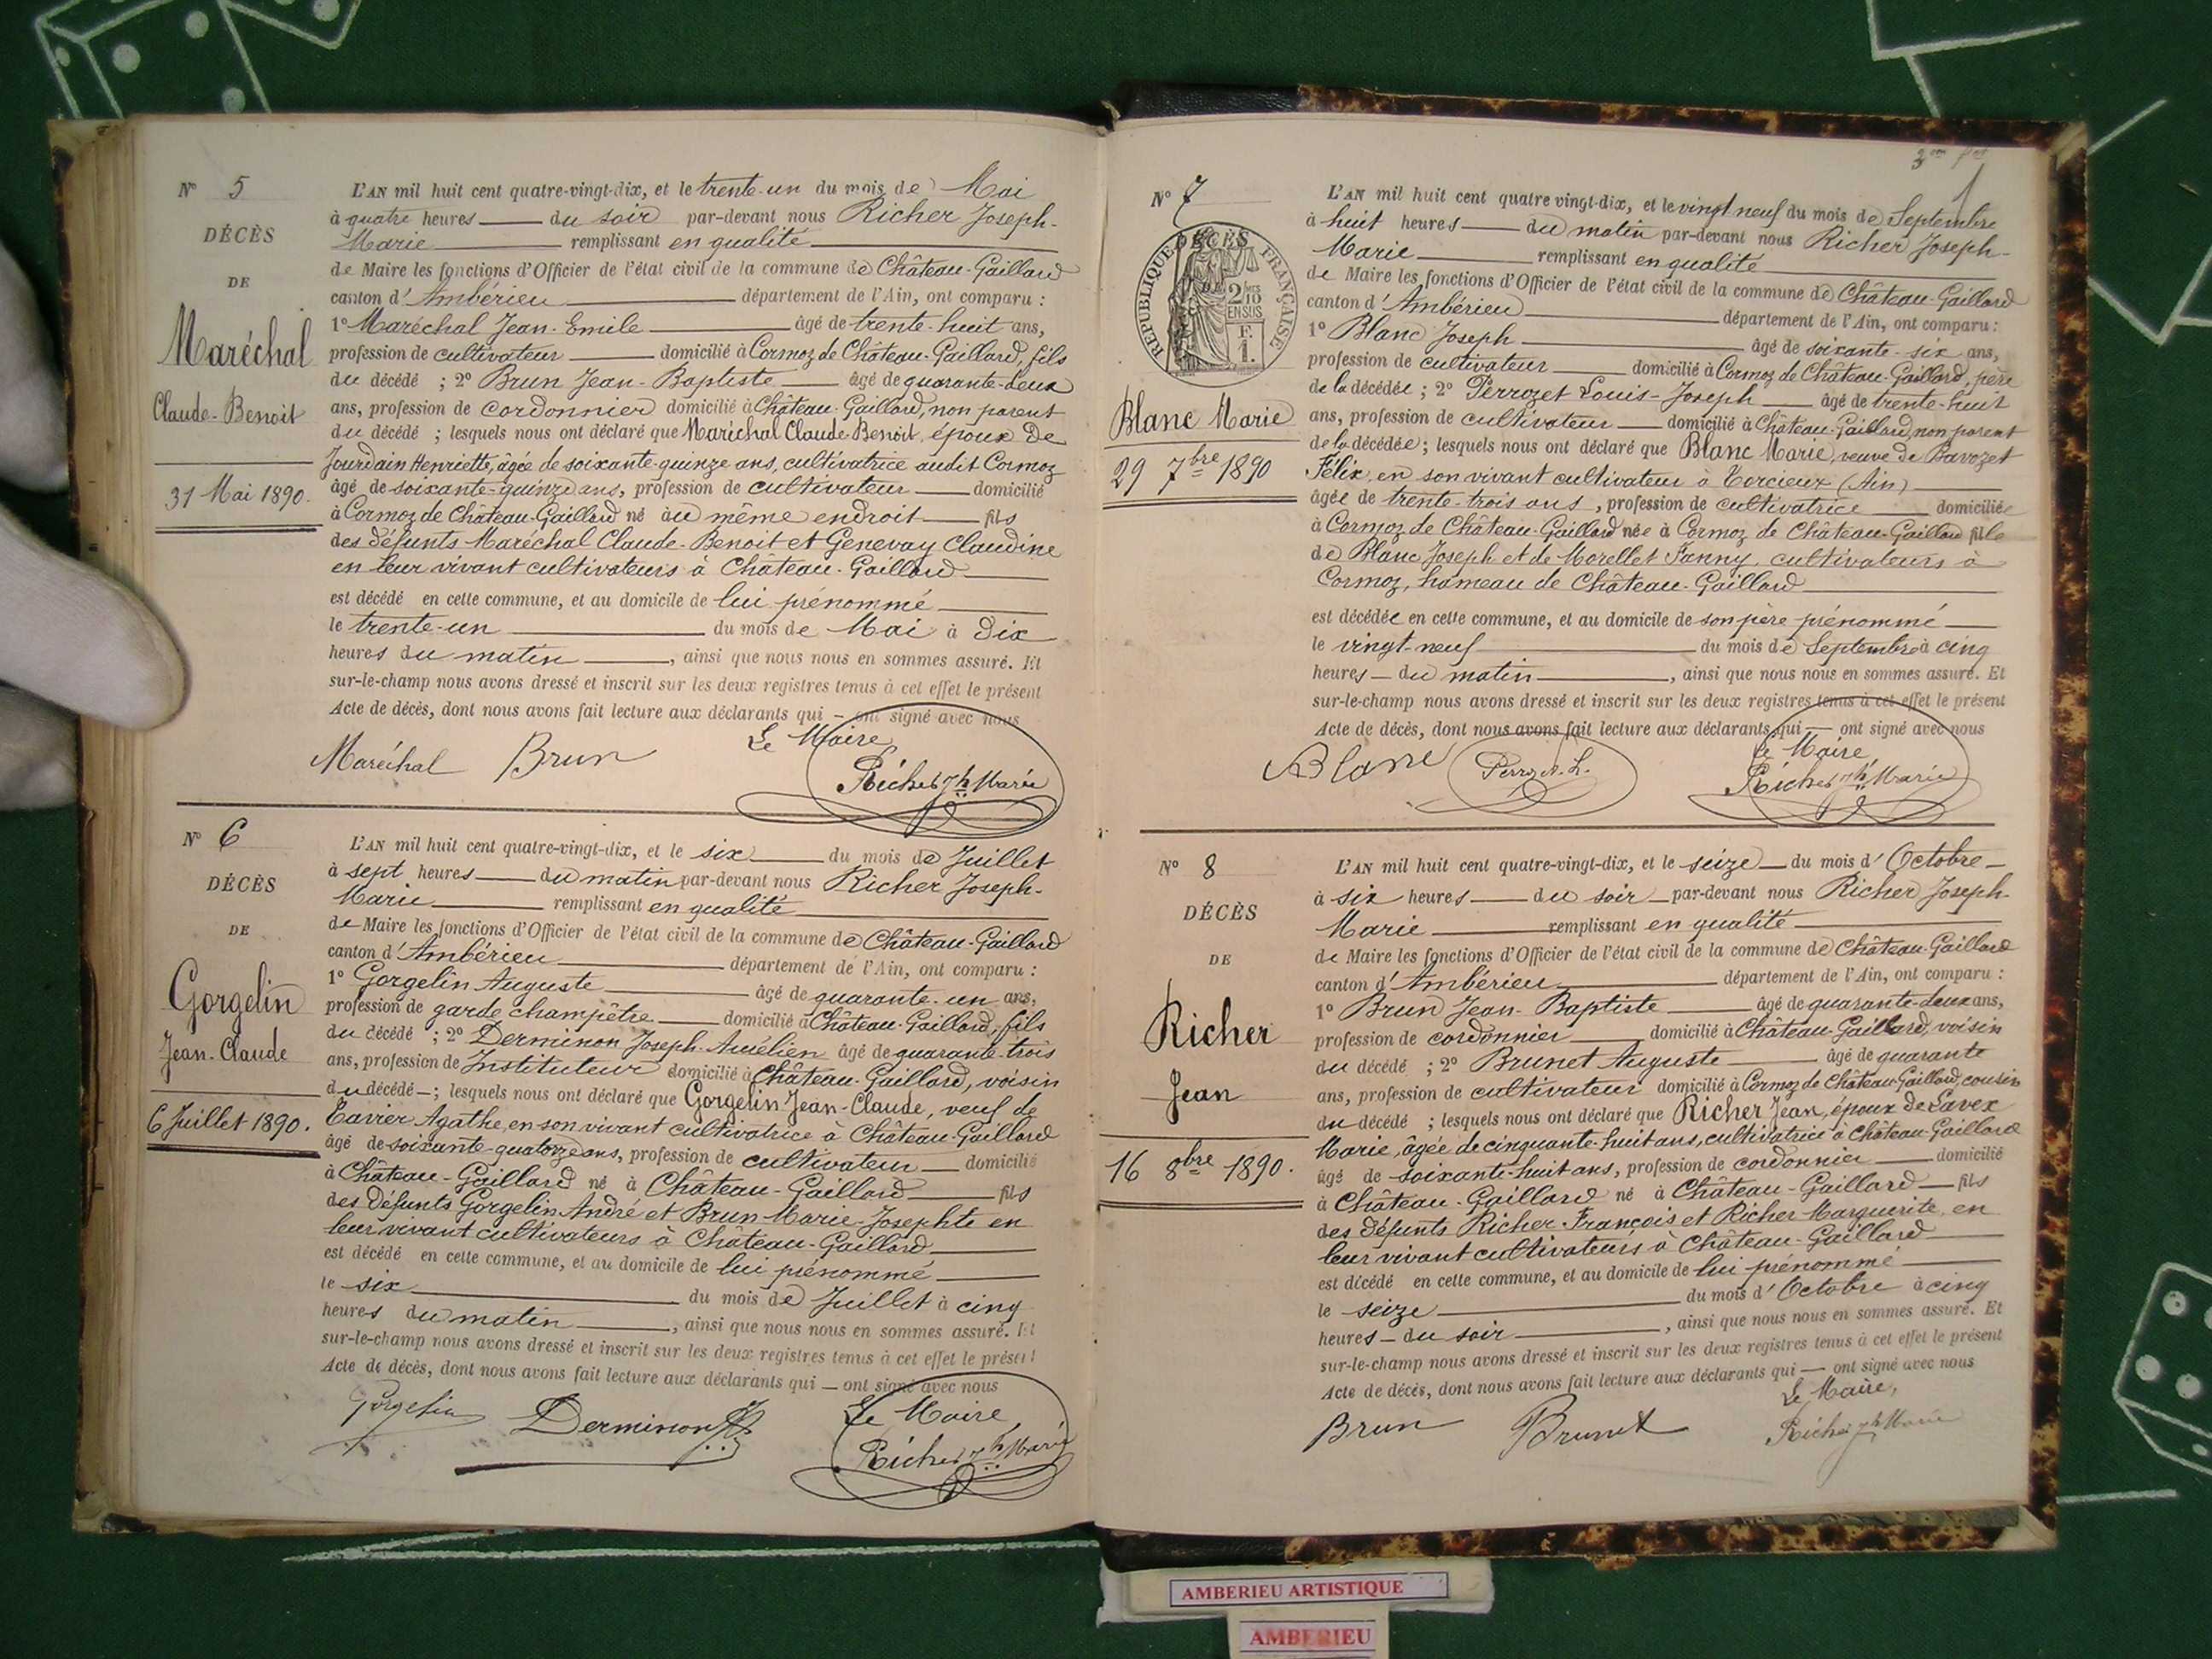 N° 5
DÉCÈS
DE
Maréchal
Claude-Benoit
31 Mai 1890.
L'AN mil huit cent quatre-vingt-dix, et le trente-un du mois de Mai
à quatre heures du soir par-devant nous Richer Joseph-
Marie remplissant en qualité
de Maire les fonctions d'Officier de l'état civil de la commune de Château-Gaillard
canton d'Ambérieu département de l'Ain, ont comparu :
1° Maréchal Jean-Emile âgé de trente-huit ans,
profession de cultivateur domicilié à Cormoz de Château-Gaillard, fils
du décédé ; 2° Brun Jean-Baptiste âgé de quarante-deux
ans, profession de cordonnier domicilié à Château-Gaillard, non parent
du décédé ; lesquels nous ont déclaré que Maréchal Claude-Benoit, époux de
Jourdain Henriette, âgée de soixante-quinze ans, cultivatrice audit Cormoz
âgé de soixante-quinze ans, profession de cultivateur domicilié
à Cormoz de Château-Gaillard né au même endroit fils
des défunts Maréchal Claude-Benoit et Genevay Claudine
en leur vivant cultivateurs à Château-Gaillard
est décédé en cette commune, et au domicile de lui prénommé
le trente-un du mois de Mai à dix
heures du matin, ainsi que nous nous en sommes assuré. Et
sur-le-champ nous avons dressé et inscrit sur les deux registres tenus à cet effet le présent
Acte de décès, dont nous avons fait lecture aux déclarants qui - ont signé avec nous
Le Maire
Maréchal Brun Richer Jh Marie
N° 6
DÉCÈS
DE
Gorgelin
Jean-Claude
6 Juillet 1890.
L'AN mil huit cent quatre-vingt-dix, et le six du mois de Juillet
à sept heures du matin par-devant nous Richer Joseph-
Marie remplissant en qualité
de Maire les fonctions d'Officier de l'état civil de la commune de Château-Gaillard
canton d'Ambérieu département de l'Ain, ont comparu :
1° Gorgelin Auguste âgé de quarante-un ans,
profession de garde champêtre domicilié à Château-Gaillard, fils
du décédé ; 2° Derminon Joseph-Aurélien âgé de quarante-trois
ans, profession de Instituteur domicilié à Château-Gaillard, voisin
du décédé - ; lesquels nous ont déclaré que Gorgelin Jean-Claude, veuf de
Tavier Agathe, en son vivant cultivatrice à Château-Gaillard
âgé de soixante-quatorze ans, profession de cultivateur domicilié
à Château-Gaillard né à Château-Gaillard fils
des défunts Gorgelin André et Brun Marie-Josephte en
leur vivant cultivateurs à Château-Gaillard
est décédé en cette commune, et au domicile de lui prénommé
le six du mois de Juillet à cinq
heures du matin, ainsi que nous nous en sommes assuré. Et
sur-le-champ nous avons dressé et inscrit sur les deux registres tenus à cet effet le présent
Acte de décès, dont nous avons fait lecture aux déclarants qui - ont signé avec nous
Le Maire,
Gorgelin Derminon Richer Jh Marie
N° 7
DÉCÈS
RÉPUBLIQUE FRANÇAISE
2/10 EN SUS
F. 1.
Blanc Marie
29 7bre 1890
L'AN mil huit cent quatre vingt-dix, et le vingt neuf du mois de Septembre
à huit heures du matin par-devant nous Richer Joseph-
Marie remplissant en qualité
de Maire les fonctions d'Officier de l'état civil de la commune de Château-Gaillard
canton d'Ambérieu département de l'Ain, ont comparu :
1° Blanc Joseph âgé de soixante-six ans,
profession de cultivateur domicilié à Cormoz de Château-Gaillard, père
de la décédée ; 2° Perrozet Louis-Joseph âgé de trente-huit
ans, profession de cultivateur domicilié à Château-Gaillard, non parent
de la décédée ; lesquels nous ont déclaré que Blanc Marie, veuve de Bavozet
Félix, en son vivant cultivateur à Torcieux (Ain)
âgée de trente-trois ans, profession de cultivatrice domiciliée
à Cormoz de Château-Gaillard née à Cormoz de Château-Gaillard fille
de Blanc Joseph et de Morellet Fanny, cultivateurs à
Cormoz, hameau de Château-Gaillard
est décédée en cette commune, et au domicile de son père prénommé
le vingt-neuf du mois de Septembre à cinq
heures - du matin, ainsi que nous nous en sommes assuré. Et
sur-le-champ nous avons dressé et inscrit sur les deux registres tenus à cet effet le présent
Acte de décès, dont nous avons fait lecture aux déclarants qui - ont signé avec nous
Le Maire
Blanc Perrozet L. Richer Jh Marie
N° 8
DÉCÈS
DE
Richer
Jean
16 8bre 1890.
L'AN mil huit cent quatre-vingt-dix, et le seize du mois d'Octobre
à six heures du soir par-devant nous Richer Joseph-
Marie remplissant en qualité
de Maire les fonctions d'Officier de l'état civil de la commune de Château-Gaillard
canton d'Ambérieu département de l'Ain, ont comparu :
1° Brun Jean-Baptiste âgé de quarante-deux ans,
profession de cordonnier domicilié à Château-Gaillard, voisin
du décédé ; 2° Brunet Auguste âgé de quarante
ans, profession de cultivateur domicilié à Cormoz de Château-Gaillard, cousin
du décédé ; lesquels nous ont déclaré que Richer Jean, époux de Savex
Marie, âgée de cinquante-huit ans, cultivatrice à Château-Gaillard
âgé de soixante-huit ans, profession de cordonnier domicilié
à Château-Gaillard né à Château-Gaillard fils
des défunts Richer François et Richer Marguerite, en
leur vivant cultivateurs à Château-Gaillard
est décédé en cette commune, et au domicile de lui prénommé
le seize du mois d'Octobre à cinq
heures - du soir, ainsi que nous nous en sommes assuré. Et
sur-le-champ nous avons dressé et inscrit sur les deux registres tenus à cet effet le présent
Acte de décès, dont nous avons fait lecture aux déclarants qui - ont signé avec nous
Le Maire,
Brun Brunet Richer Jh Marie
AMBERIEU ARTISTIQUE
AMBERIEU